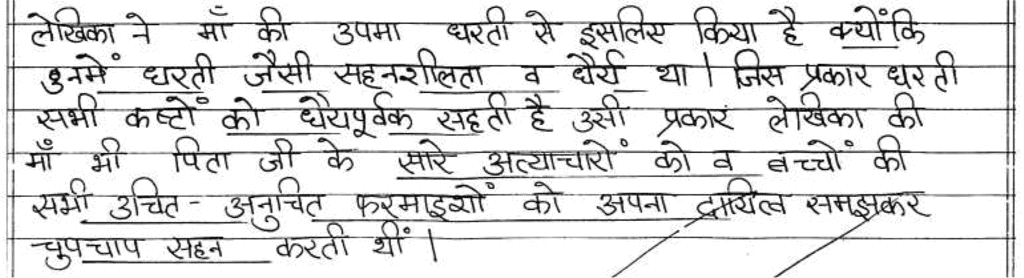 लेखिका ने माँ की उपमा धरती से इसलिए किया है क्योंकि
उनमें धरती जैसी सहनशीलता व धैर्य था। जिस प्रकार धरती
सभी कष्टों को धैयपूर्वक सहती है उसी प्रकार लेखिका की
माँ भी पिता जी के सारे अत्याचारों को व बच्चों की
सभी उचित - अनुचित फरमाइशों को अपना दायित्व समझकर
चुपचाप सहन करती थीं।